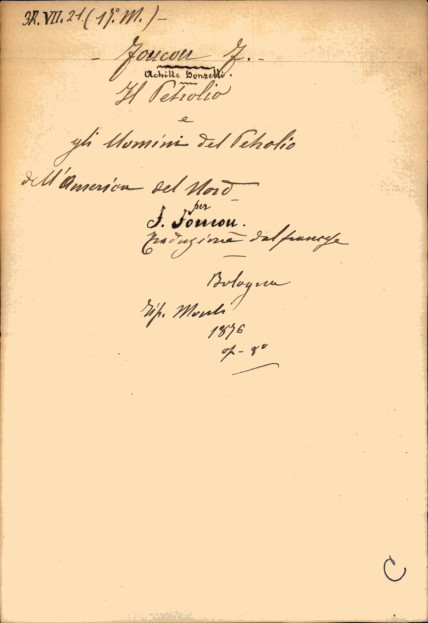 37. VII. 21. (17º. M.) -
- Foucou F. -
Achille Donzelli.
Il Petrolio
e
gli Uomini del Petrolio
dell'America del Nord
per
F. Foucou.
Traduzione dal francese
Bologna
Tip. Monti
1876
op - 8º
C